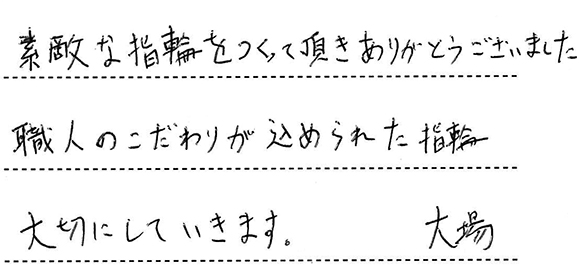 素敵な指輪をつくって頂きありがとうございました
職人のこだわりが込められた指輪
大切にしていきます。 大場